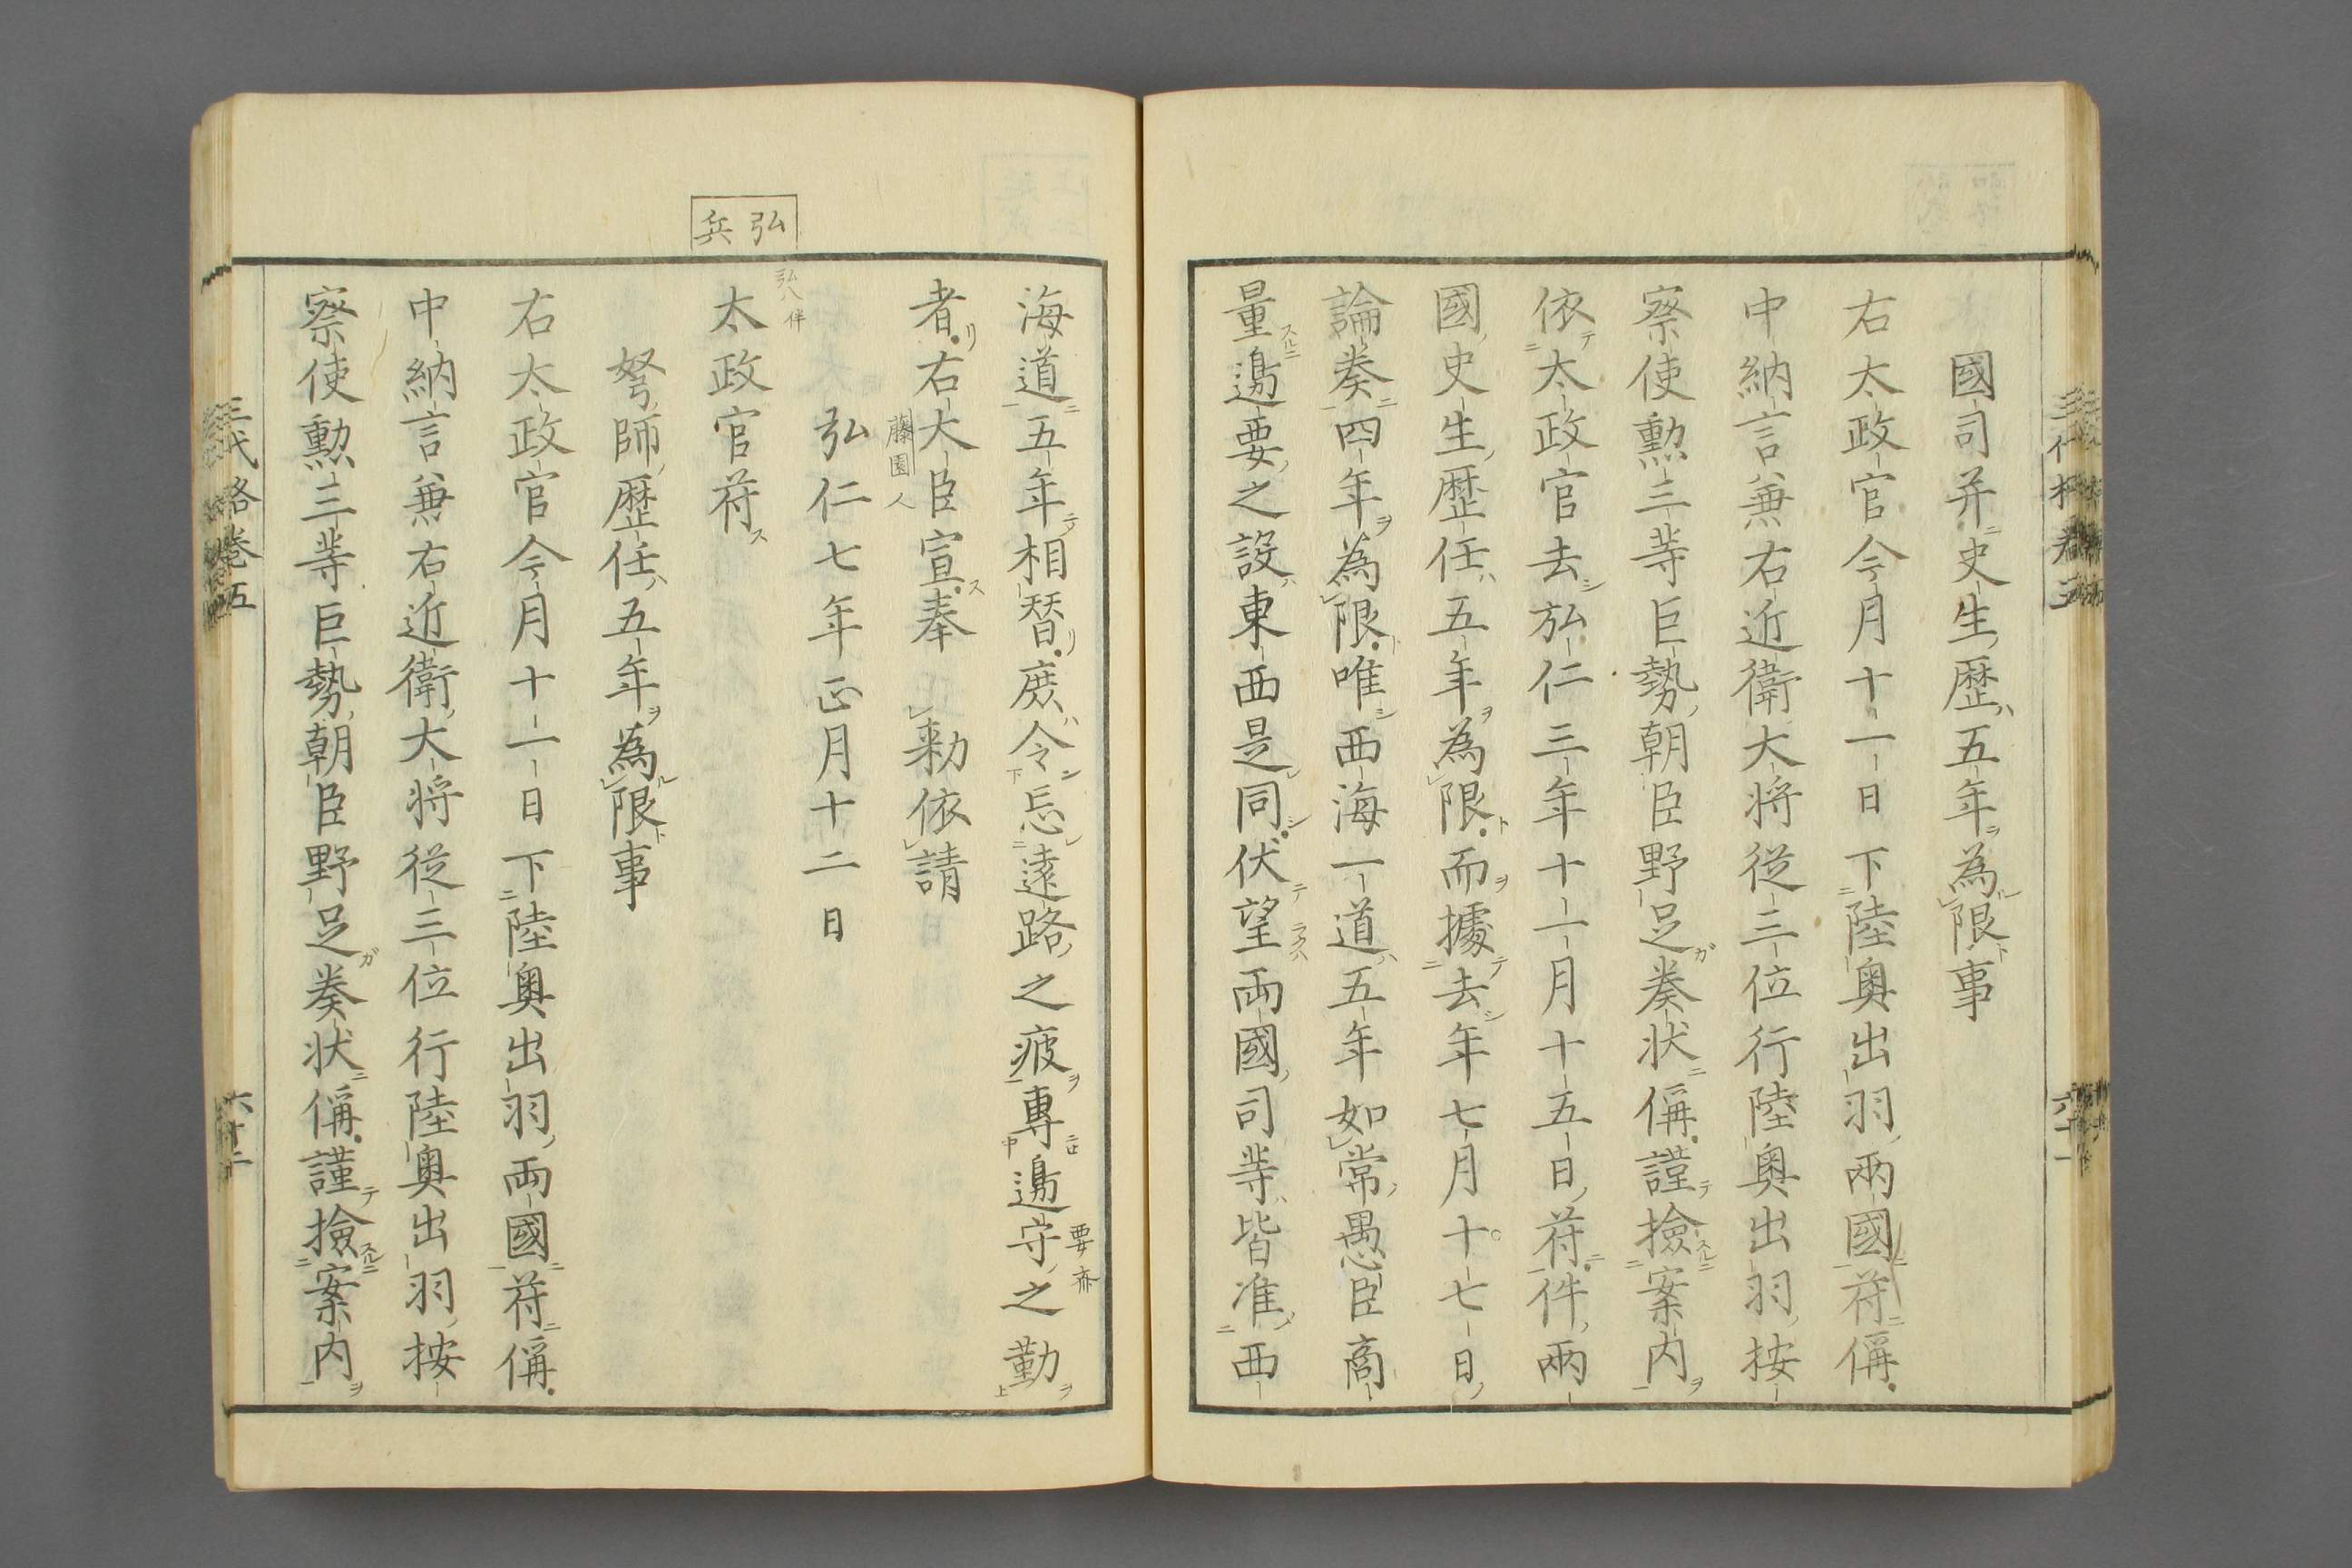 國司并史生歴五年為限事
右太政官今月十一日下陸奥出羽兩國苻偁
中納言兼右近衛大将從三位行陸奥出羽按
察使勲三䓁巨勢朝臣野足奏状偁謹撿案内
依太政官去弘仁三年十一月十五日苻件兩
國史生歴任五年為限而據去年七月十七日
論奏四年為限唯西海一道五年如常愚臣商
量邊要之設東西是同伏望兩國司䓁皆准西
海道五年相替庶令忘遠路之疲專邊守之勤
要亦
者右大臣宣奉 勅依請
藤園人
弘仁七年正月十二日
弘兵
弘八伴
太政官苻
弩師歴任五年為限事
右太政官今月十一日下陸奥出羽兩國苻偁
中納言兼右近衛大将從三位行陸奥出羽按
察使勲三䓁巨勢朝臣野足奏状偁謹撿案内
三代格卷五
六十二